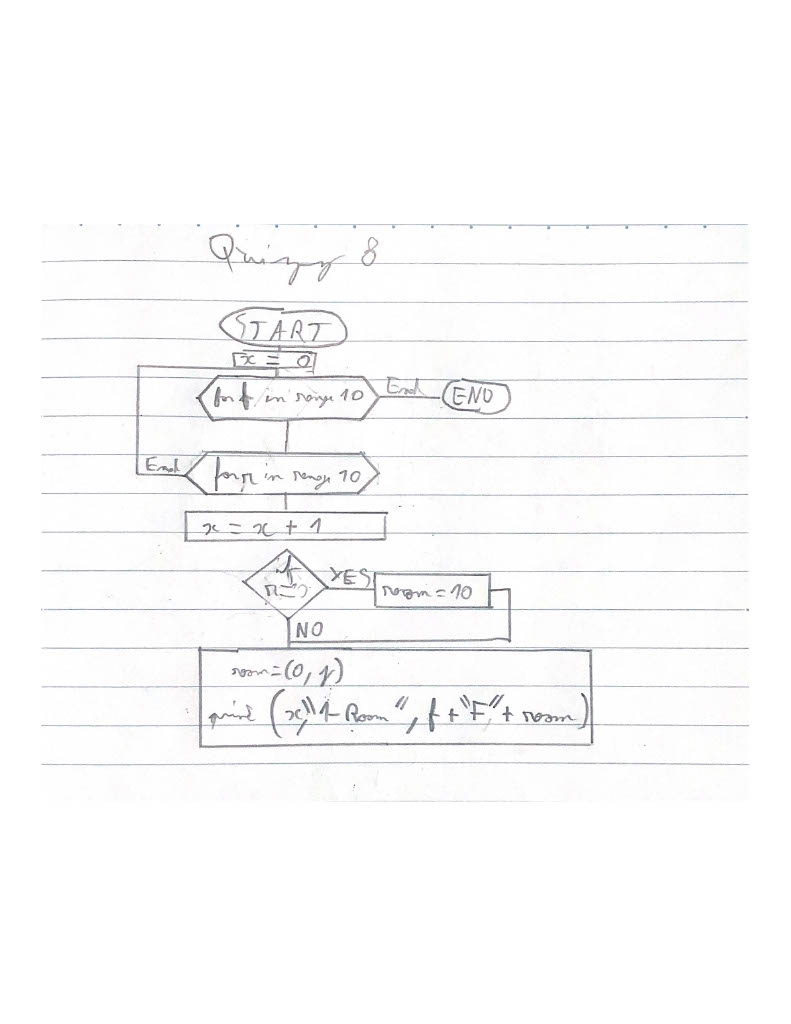 Quizzy 8
START
x = 0
for f in range 10 End END
End for r in range 10
x = x + 1
if YES room = 10
NO
room = (0, r)
print (x, "1-Room", f + "F" + room)